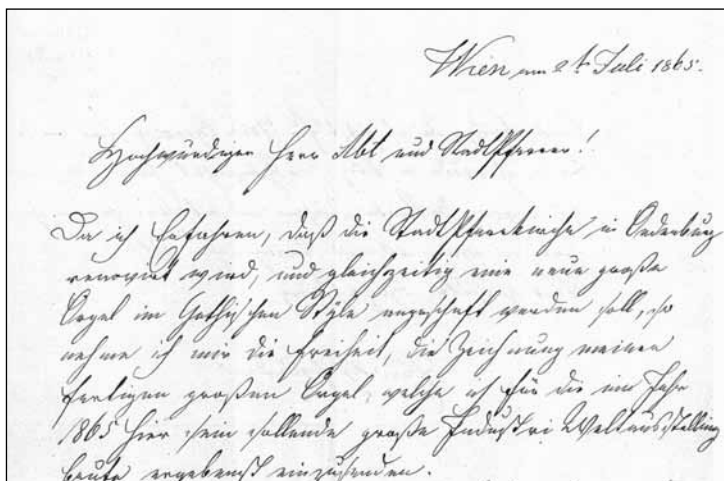 Wien am 2t Juli 1865.
Hochwürdiger Herr Abt und Stadtpfarrer!
Da ich Erfahren, daß die Stadtpfarrkirche in Oedenburg
renovirt wird, und gleichzeitig eine neue große
Orgel im Gothischen Style angeschaft werden soll, so
nehme ich mir die Freiheit, die Zeichnung meiner
fertigen großen Orgel, welche ich für die im Jahr
1865 hier sein sollende große Industri Weltausstellung
baute ergebenst einzusenden.